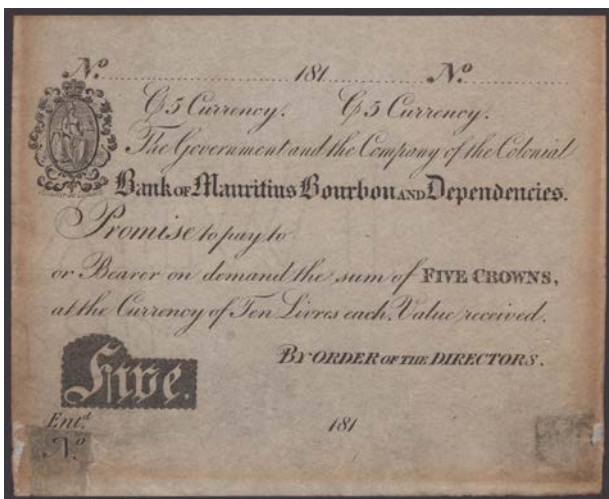 No. 181 No.
C/5 Currency. C/5 Currency.
The Government and the Company of the Colonial
Bank of Mauritius Bourbon and Dependencies.
Promise to pay to
or Bearer on demand the sum of FIVE CROWNS,
at the Currency of Ten Livres each. Value received.
BY ORDER OF THE DIRECTORS.
Five.
Ent.d 181
No.